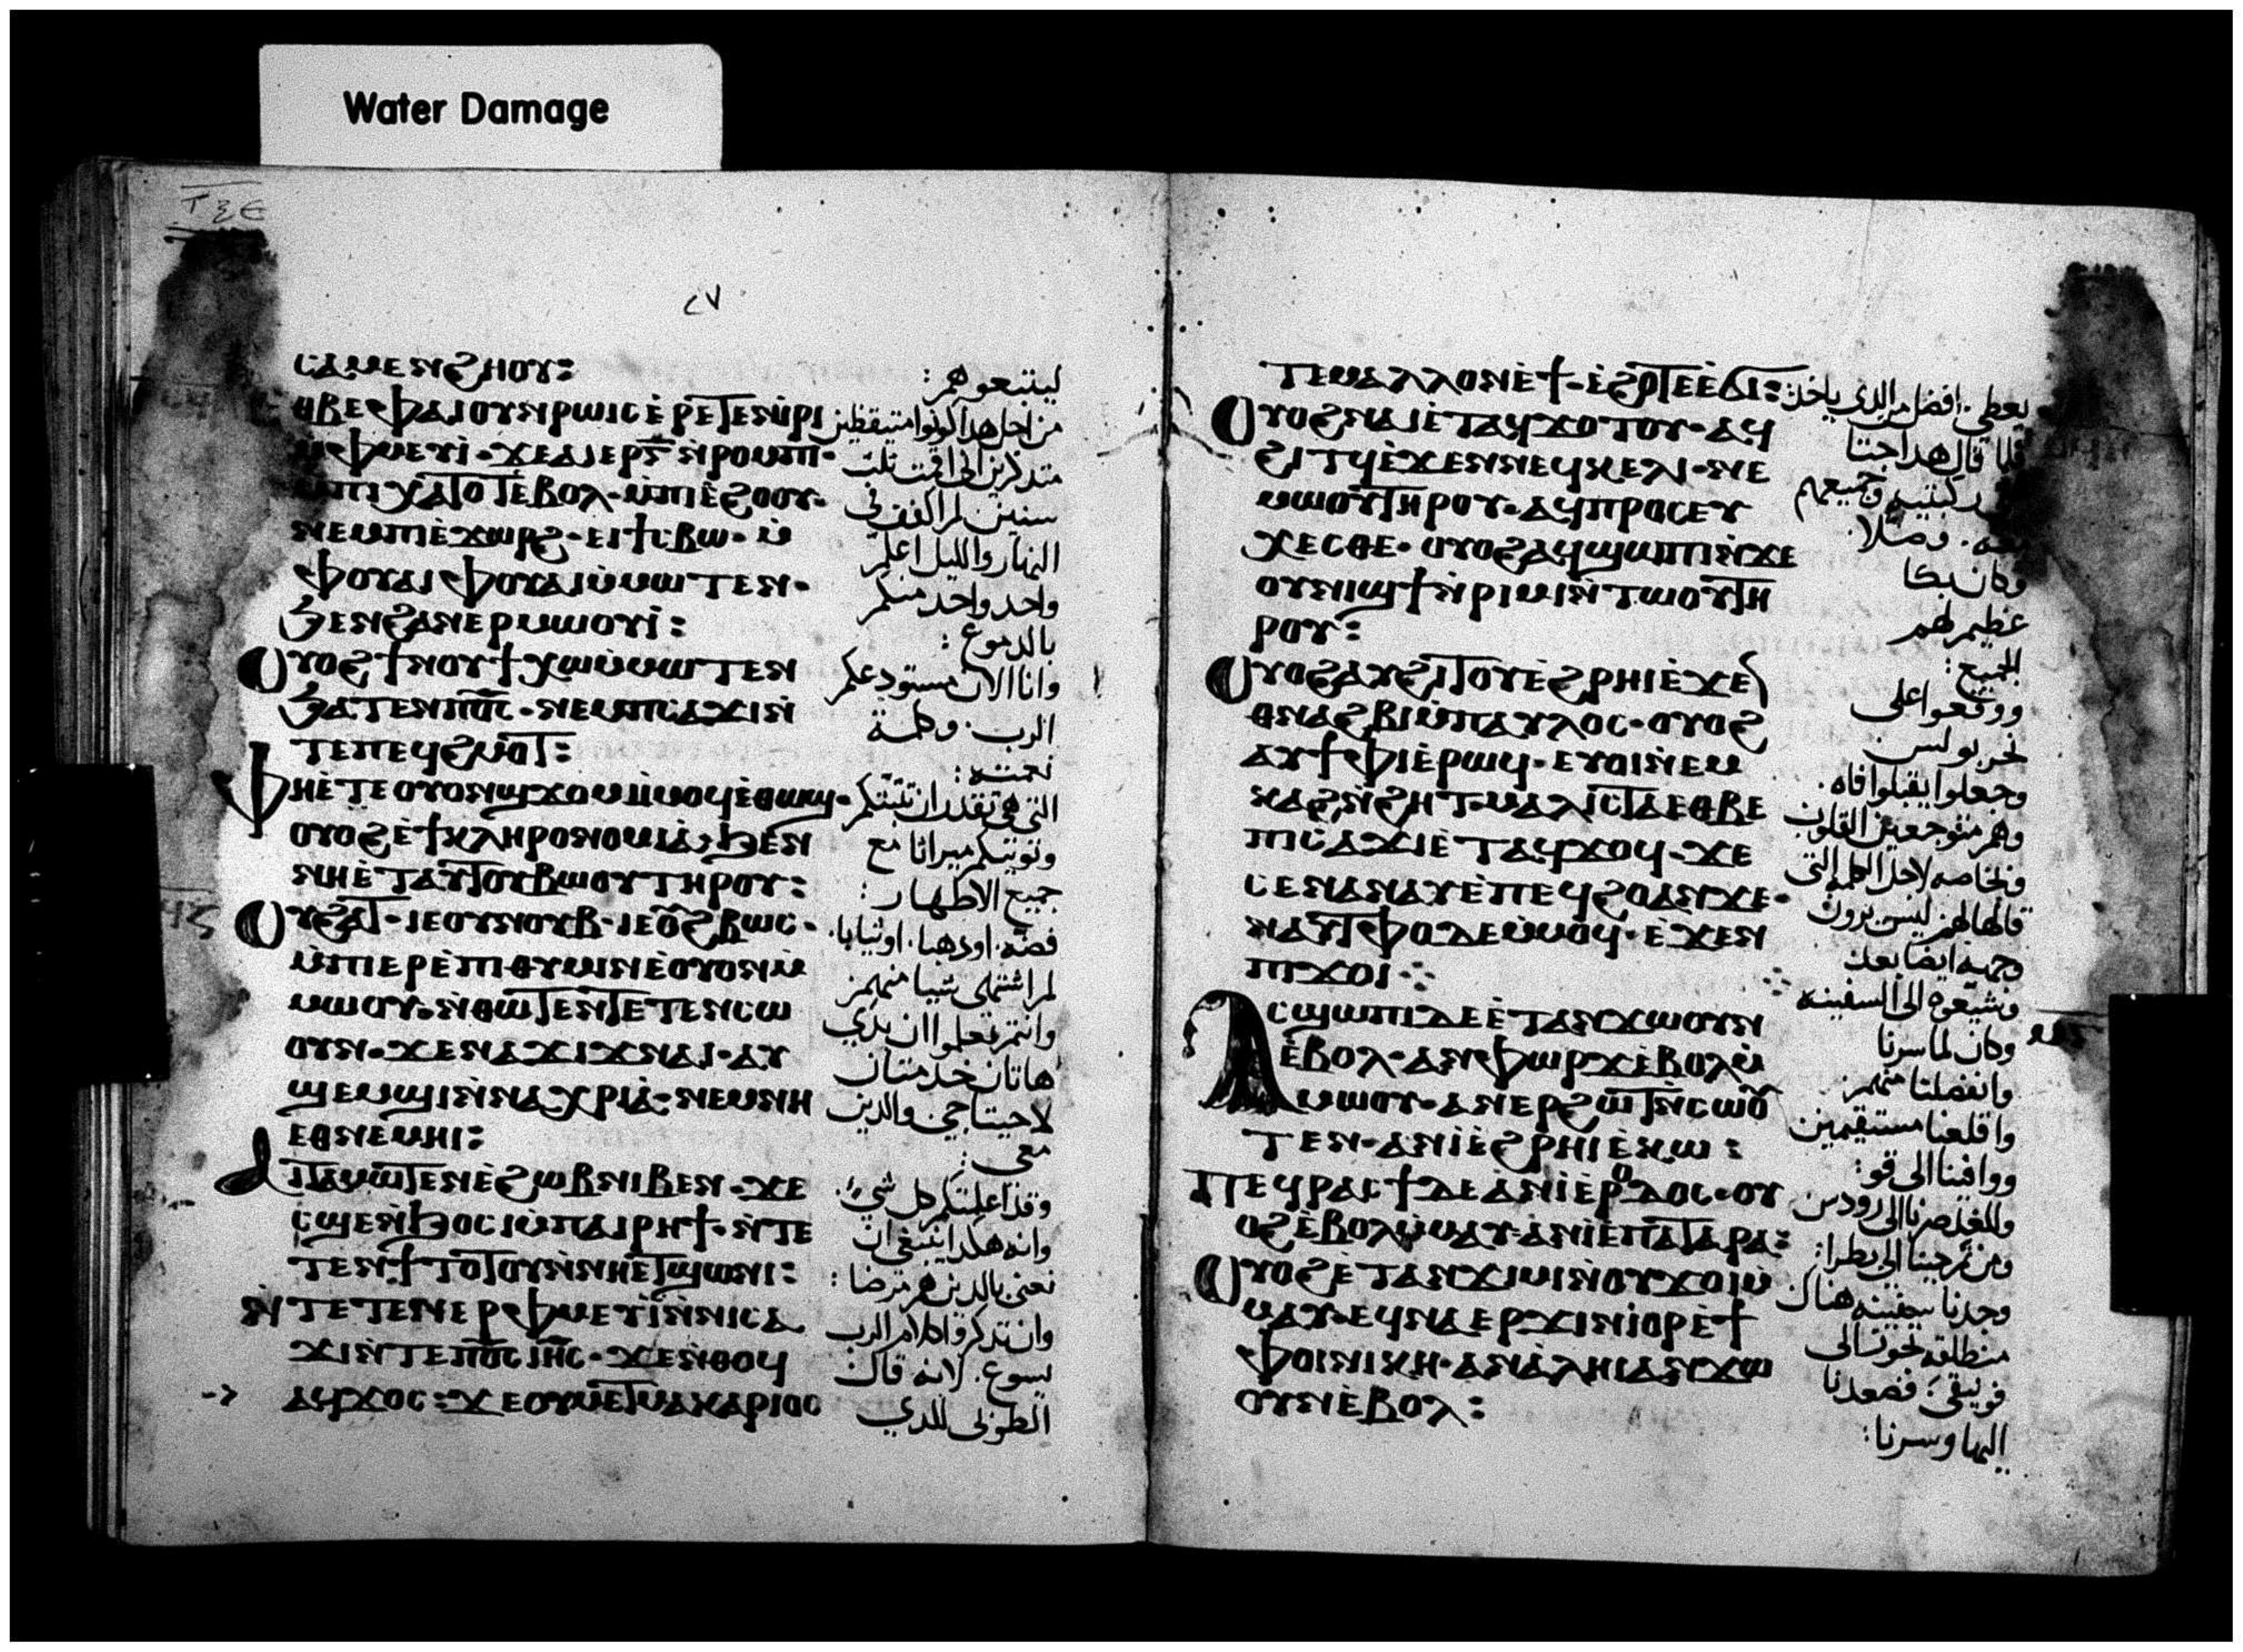 Water Damage
ⲧⲝⲉ
ⲥⲁⲙⲉⲛϩⲏⲟⲩ:
ⲑⲃⲉⲫⲁⲓⲟⲩⲛⲣⲱⲓⲥⲉ̀ⲣⲉⲧⲉⲛⲓ̀ⲣⲓ
ⲙ̀ⲫⲙⲉⲩⲓ̀·ϫⲉⲁⲓⲉⲣⲅ̅ⲛ̀ⲣⲟⲙⲡⲓ·
ⲙ̀ⲡⲓⲭⲁⲧⲟⲧⲉⲃⲟⲗ·ⲙ̀ⲡⲓⲉ̀ϩⲟⲟⲩ·
ⲛⲉⲙⲡⲓⲉ̀ϫⲱⲣϩ·ⲉⲓϯⲥⲃⲱ·ⲙ̀
ⲫⲟⲩⲁⲓⲫⲟⲩⲁⲓⲙ̀ⲙⲱⲧⲉⲛ·
ϧⲉⲛϩⲁⲛⲉⲣⲙⲱⲟⲩⲓ̀:
ⲟⲩⲟϩϯⲛⲟⲩϯⲭⲱⲙ̀ⲙⲱⲧⲉⲛ
ϧⲁⲧⲉⲛⲡⲟ̅ⲥ̅·ⲛⲉⲙⲡⲥⲁϫⲓⲛ
ⲧⲉⲡⲉϥϩⲙⲟⲧ:
ⲫⲏⲉ̀ⲧⲉⲟⲩⲟⲛϣϫⲟⲙⲙ̀ⲙⲟϥⲉ̀ⲑⲱϣ·
ⲟⲩⲟϩⲉ̀ϯⲕⲗⲏⲣⲟⲛⲟⲙⲓⲁ̀·ϧⲉⲛ
ⲛⲏⲉ̀ⲧⲁⲩⲧⲟⲩⲃⲱⲟⲩⲧⲏⲣⲟⲩ:
ⲟⲩϩⲁⲧ·ⲓⲉⲟⲩⲛⲟⲩⲃ·ⲓⲉⲟ̅ϩⲃⲱⲥ·
ⲙ̀ⲡⲓⲉⲣⲉ̀ⲡⲓⲑⲩⲙⲓⲛⲉ̀ⲟⲩⲟⲛⲙ̀
ⲙⲱⲟⲩ·ⲛ̀ⲑⲱⲧⲉⲛⲧⲉⲧⲉⲛⲥⲱ
ⲟⲩⲛ·ϫⲉⲛⲁϫⲓϫⲛⲁⲓ·ⲁⲩ
ϣⲉⲙϣⲓⲛ̀ⲛⲁⲭⲣⲓⲁ̀·ⲛⲉⲙⲛⲏ
ⲉⲑⲛⲉⲙⲏⲓ:
ⲁⲓⲧⲁⲙⲱⲧⲉⲛⲉ̀ϩⲱⲃⲛⲓⲃⲉⲛ·ϫⲉ
ⲥϣⲉⲛ̀ϧⲟⲥⲓⲙ̀ⲡⲁⲓⲣⲏϯ·ⲛ̀ⲧⲉ
ⲧⲉⲛϯⲧⲟⲧⲟⲩⲛ̀ⲛⲏⲉⲧϣⲱⲛⲓ:
ⲛ̀ⲧⲉⲧⲉⲛⲉⲣⲫⲙⲉⲩⲓ̀ⲛ̀ⲛⲓⲥⲁ
ϫⲓⲛ̀ⲧⲉⲡⲟ̅ⲥ̅ⲓⲏ̅ⲥ̅·ϫⲉⲛ̀ⲑⲟϥ
ⲁϥϫⲟⲥ:ϫⲉⲟⲩⲙⲉⲧⲙⲁⲕⲁⲣⲓⲟⲥ
ليتبعوهم:
من اجل هذا كونوا متيقظين
متذكرين اني اقمت تلت
سنين لم اكفف في
النهار والليل اعلم
واحد واحد منكم
بالدموع:
وانا الان مستودعكم
الرب. وكلمة
نعمته:
التي هي تقدر ان تثبتكم
وتوتيكم ميراثا مع
جميع الاطهار:
فضه. او ذهبا. او ثيابا.
لم اشتهي شيا منهم
وانتم تعلموا ان يدي
هاتان خدمتان
لاحتياجي والذين
معي:
وقد اعلمتكم كل شي.
وانه هكذا ينبغي ان
نعنى بالذين هم مرضا:
وان تتذكروا كلام الرب
يسوع. لانه قال
الطوبى للذي
ⲧⲉⲙⲁⲗⲗⲟⲛⲉ̀ϯ·ⲉ̀ϩⲟ̅ⲧⲉⲉ̀ϭⲓ:
ⲟⲩⲟϩⲛⲁⲓⲉ̀ⲧⲁϥϫⲟⲧⲟⲩ·ⲁϥ
ϩⲓⲧϥⲉ̀ϫⲉⲛⲛⲉϥⲕⲉⲗⲓ·ⲛⲉ
ⲙⲱⲟⲩⲧⲏⲣⲟⲩ·ⲁϥⲡⲣⲟⲥⲉⲩ
ⲭⲉⲥⲑⲉ·ⲟⲩⲟϩⲁϥϣⲱⲡⲓⲛ̀ϫⲉ
ⲟⲩⲛⲓϣϯⲛ̀ⲣⲓⲙⲓⲛ̀ⲧⲱⲟⲩⲧⲏ
ⲣⲟⲩ:
ⲟⲩⲟϩⲁⲩϩⲓⲧⲟⲩⲉ̀ϩⲣⲏⲓⲉ̀ϫⲉ
ⲑⲛⲁϩⲃⲓⲙ̀ⲡⲁⲩⲗⲟⲥ·ⲟⲩⲟϩ
ⲁⲩϯⲫⲓⲉ̀ⲣⲱϥ·ⲉⲩⲟⲓⲛ̀ⲉⲙ
ⲕⲁϩⲛ̀ϩⲏⲧ·ⲙⲁⲗⲓⲥⲧⲁⲉⲑⲃⲉ
ⲡⲓⲥⲁϫⲓⲉ̀ⲧⲁϥϫⲟϥ·ϫⲉ
ⲥⲉⲛⲁⲛⲁⲩⲉ̀ⲡⲉϥϩⲟⲁⲛϫⲉ·
ⲛⲁⲩⲧⲫⲟⲇⲉⲙ̀ⲙⲟϥ·ⲉ̀ϫⲉⲛ
ⲡⲓϫⲟⲓ⁘
ⲁⲥϣⲱⲡⲓⲇⲉⲉ̀ⲧⲁⲛⲭⲱⲟⲩⲛ
ⲉ̀ⲃⲟⲗ·ⲁⲛⲫⲱⲣϫⲉ̀ⲃⲟⲗⲙ̀
ⲙⲱⲟⲩ·ⲁⲛⲉⲣϩⲱⲧⲛ̀ⲥⲱⲟⲩ
ⲧⲉⲛ·ⲁⲛⲓ̀ⲉ̀ϩⲣⲏⲓⲉ̀ⲕⲱ:
ⲡⲉϥⲣⲁⲥϯⲇⲉⲁⲛⲓ̀ⲉ̀ⲣⲟⲇⲟⲥ·ⲟⲩ
ⲟϩⲉ̀ⲃⲟⲗⲙ̀ⲙⲁⲩ·ⲁⲛⲓ̀ⲉ̀ⲡⲁⲧⲁⲣⲁ:
ⲟⲩⲟϩⲉ̀ⲧⲁⲛϫⲓⲙⲓⲛ̀ⲟⲩϫⲟⲓⲙ̀
ⲙⲁⲩ·ⲉϥⲛⲁⲉⲣϫⲓⲛⲓ̀ⲟⲣⲉ̀ϯ
ⲫⲟⲓⲛⲓⲕⲏ·ⲁⲛⲁ̀ⲗⲏⲓⲁⲛⲭⲱ
ⲟⲩⲛⲉ̀ⲃⲟⲗ:
يعطي. افضل من الذي ياخذ:
فلما قال هذا جثا
ركبتيه وجميعهم
معه. وصلا.
وكان بكا
عظيم لهم
الجميع:
ووقعوا على
نحر بولس
وجعلوا يقبلوا فاه.
وهم متوجعين القلوب
وبخاصه لاجل الكلمه التي
قالها لهم ليس يرون
وجهه ايضا بعد
وشيعوه الى السفينه
وكان لما سرنا
وانفصلنا منهم
واقلعنا مستقيمين
ووافينا الى قو:
وللغد صرنا الى رودس
ومن ثم جينا الى بطرا:
وجدنا سفينه هناك
منطلقه تجوز الى
فونيقي. فصعدنا
اليها وسرنا: